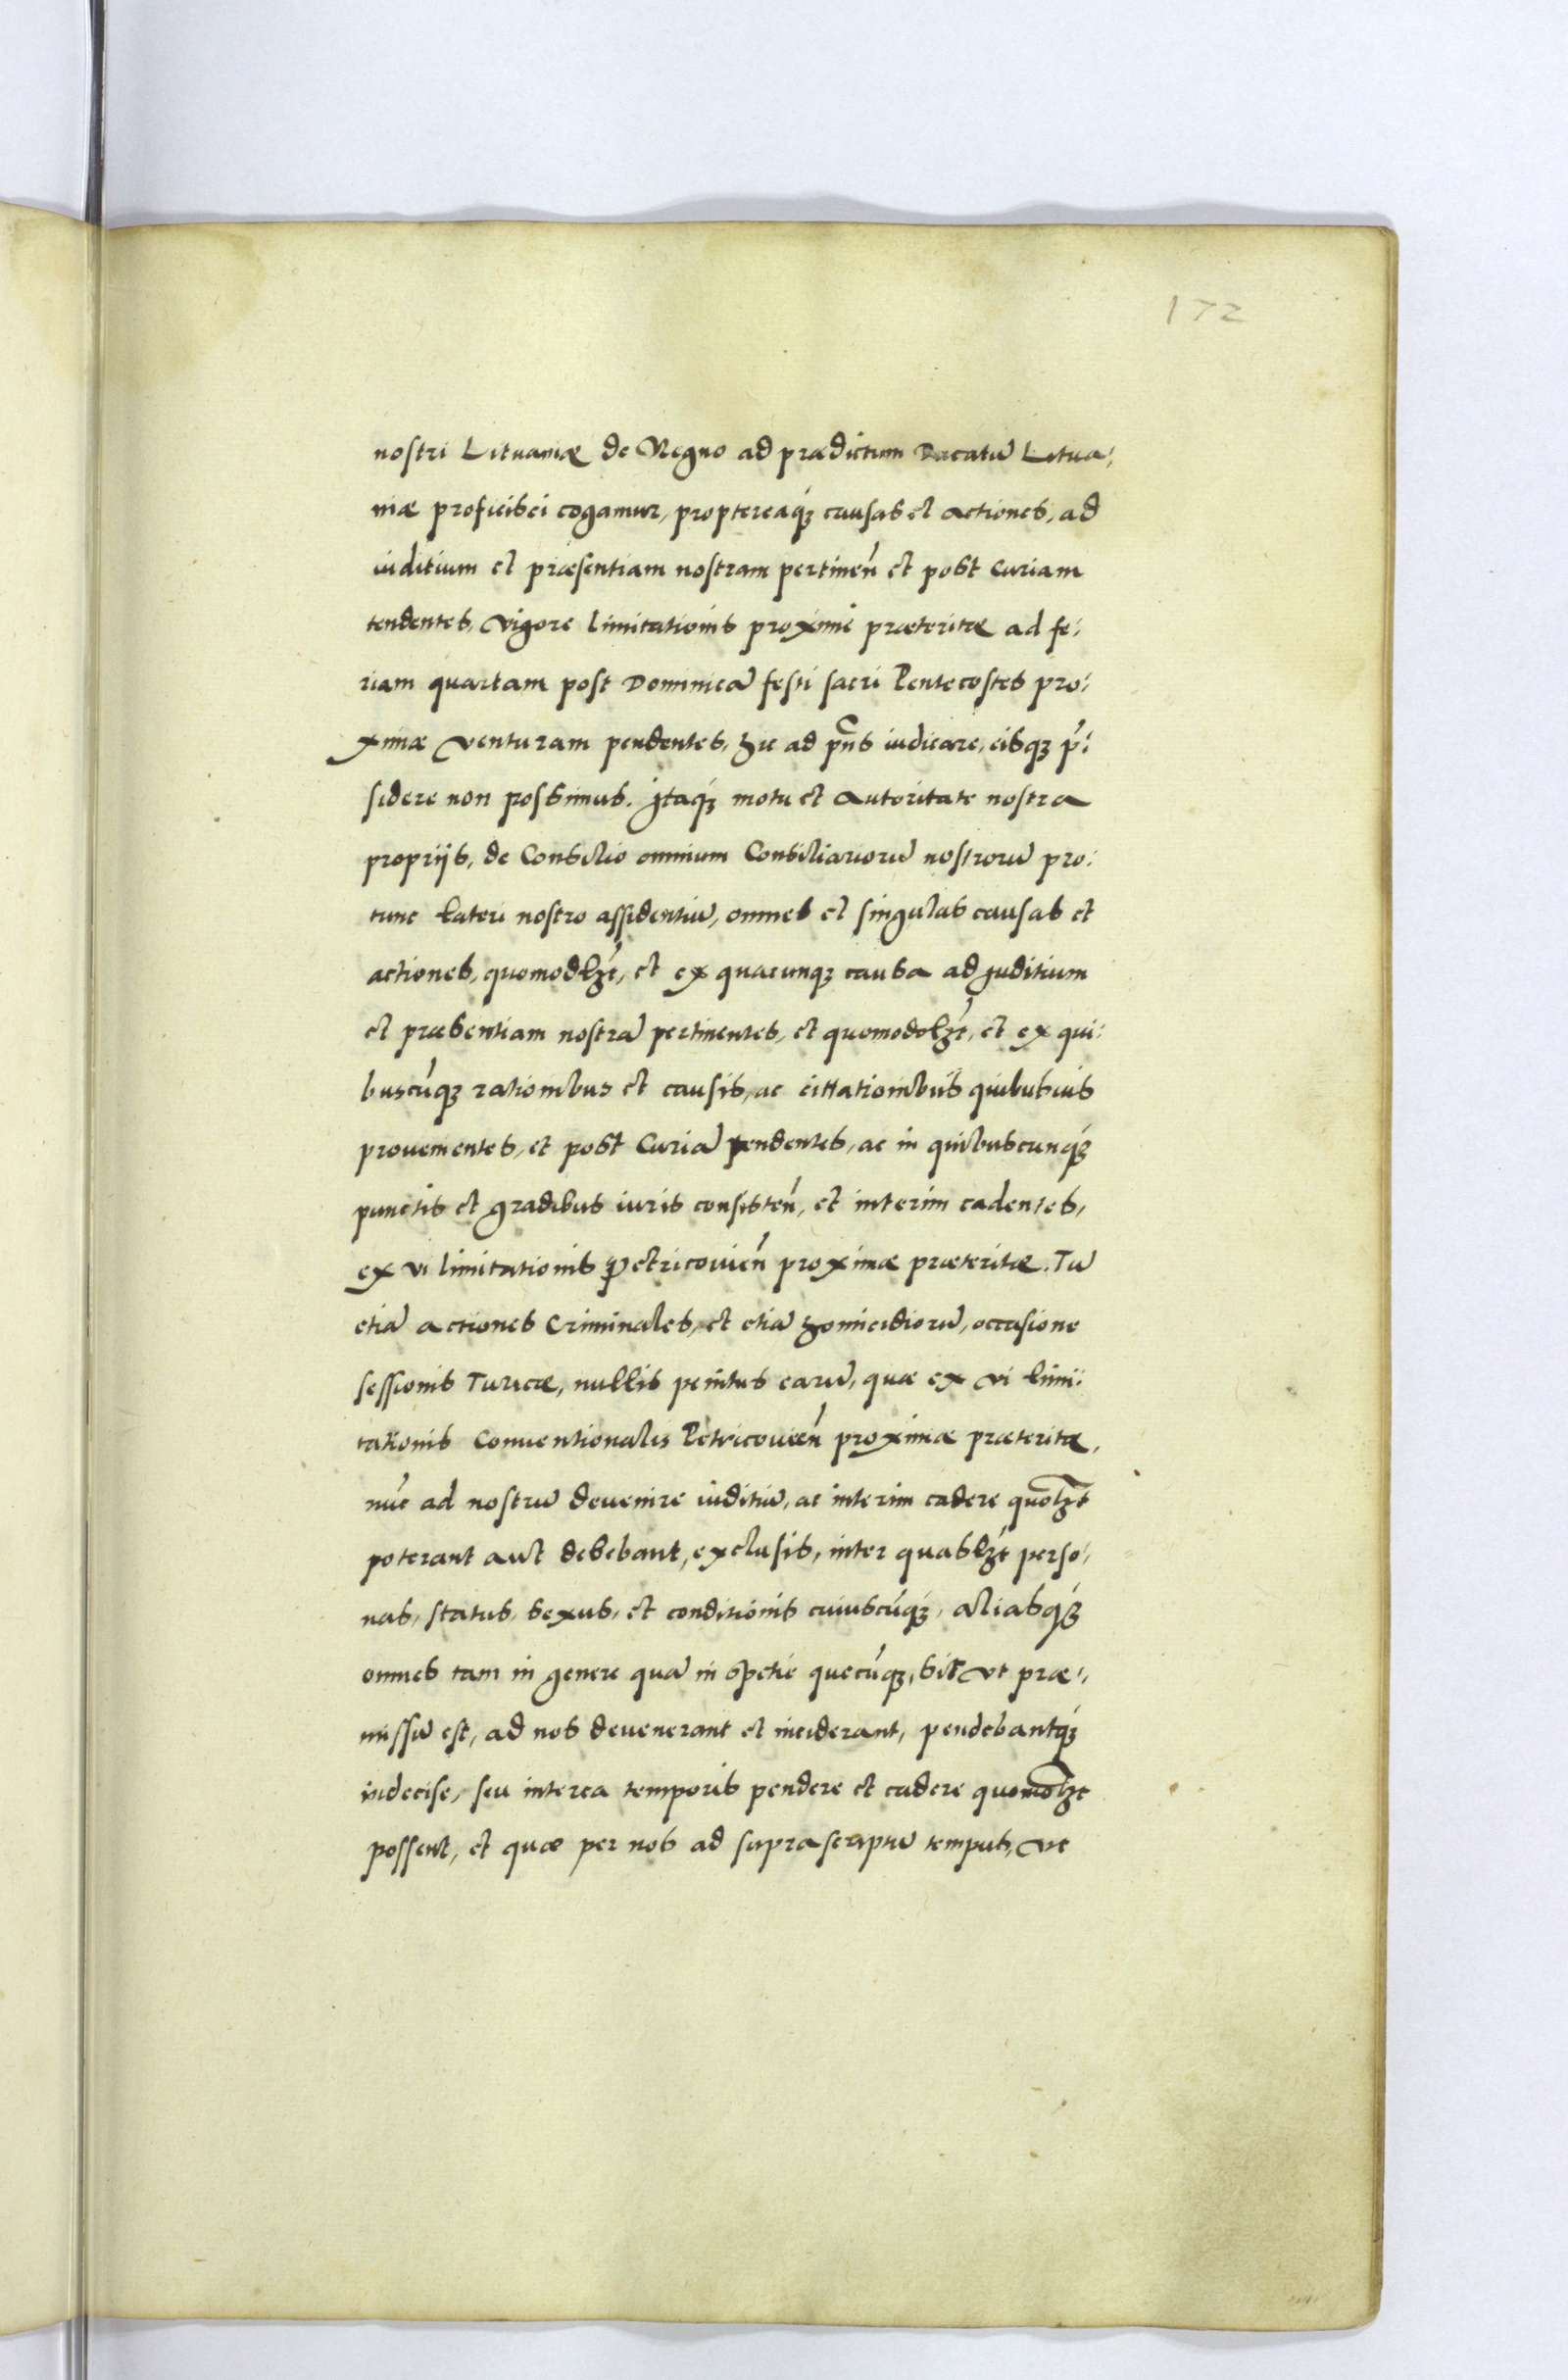 172
nostri Lituaniæ de Regno ad prædictum Ducatũ Litua:
niæ proficisci cogamur, proptereaq́ꝫ causas et actiones, ad
iuditium et præsentiam nostram pertineñ et post Curiam
tendentes, vigore limitationis proxime præteritæ ad fe:
riam quartam post Dominicã festi sacri Pentecostes pro:
ximæ venturam pendentes, huc ad pñs iudicare, eisqꝫ p̃:
sidere non possimus. Itaq́ꝫ motu et autoritate nostra
proprijs, de Consilio omnium Consiliariorũ nostrorũ pro:
tunc lateri nostro assidentiũ, omnes et singulas causas et
actiones, quomodlꝫt, et ex quacunqꝫ causa ad Juditium
et præsentiam nostrã pertinentes, et quomodolꝫt, et ex qui:
buscũqꝫ rationibus et causis, ac cittationibus quibusvis
provenientes, et post Curiã pendentes, ac in quibuscunq́ꝫ
punctis et gradibus iuris consisteñ, et interim cadentes,
ex vi limitationis Petricovieñ proximæ præteritæ. Tũ
etiã actiones Criminales, et etiã homicidiorũ, occasione
sessionis Turicæ, nullis penitus earũ, quæ ex vi limi:
tationis Conventionalis Petricovieñ proximæ præteritæ,
nũc ad nostrũ devenire iuditiũ, ac interim cadere quolꝫt
poterant aut debebant, exclusis, inter quaslꝫt perso:
nas, status, sexus, et conditionis cuiuscũqꝫ, aliasq́ꝫ
omnes tam in genere quã in spetie quecũqꝫ, sic vt præ:
missũ est, ad nos devenerant et inciderant, pendebantq́ꝫ
indecise, seu interea temporis pendere et cadere quomolꝫt
possent, et quæ per nos ad suprascriptũ tempus, vt